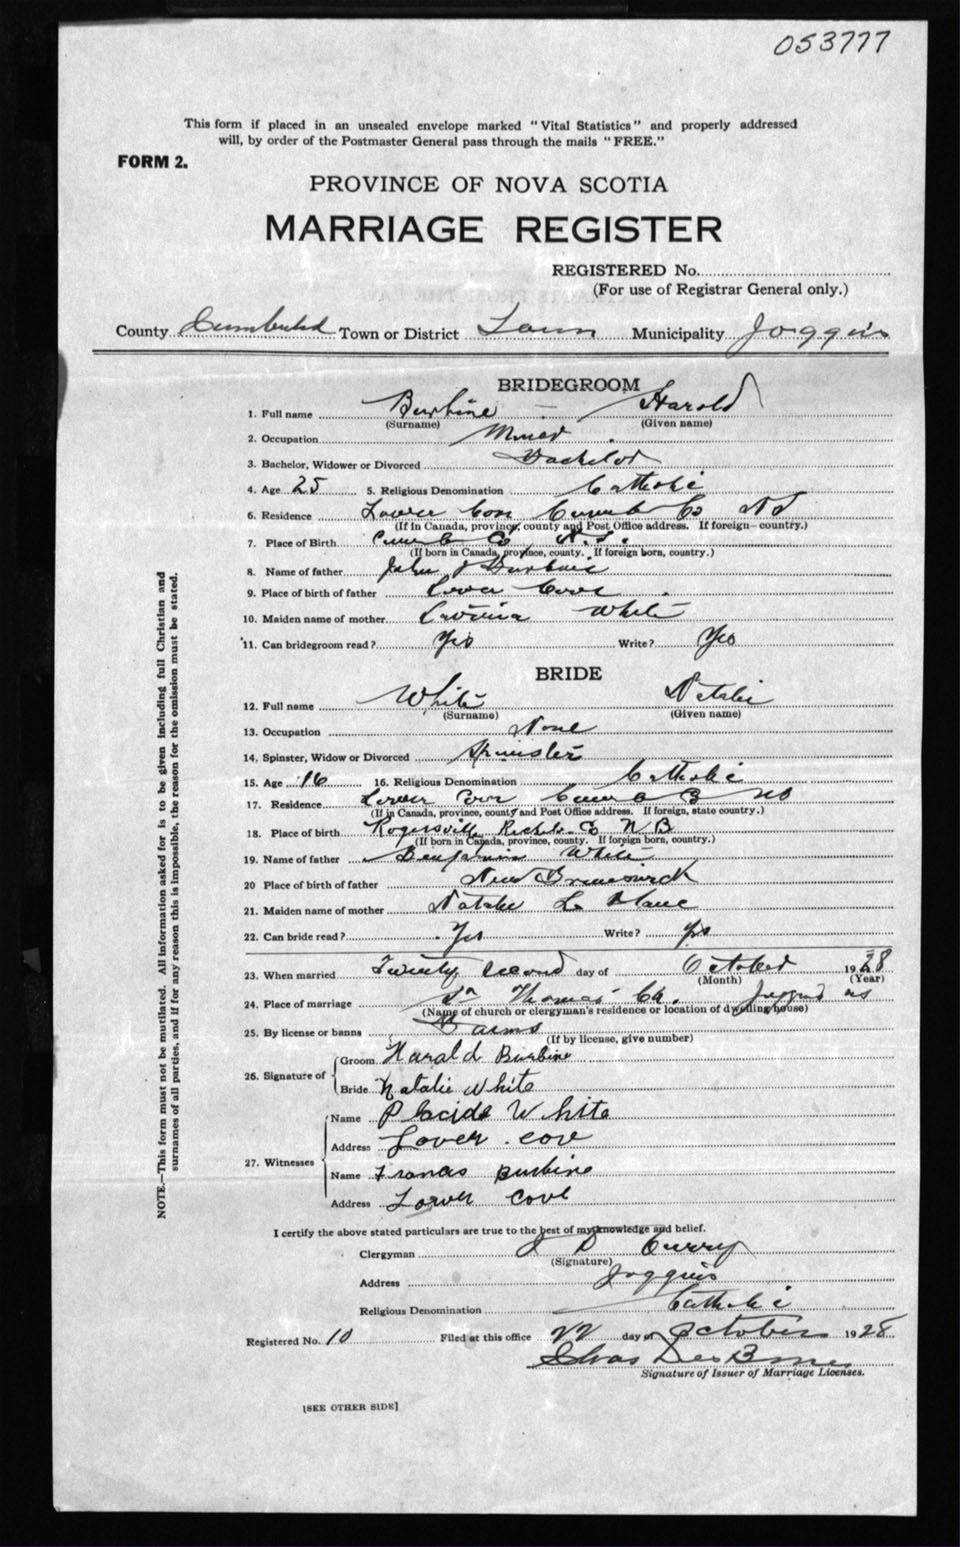 053777
This form if placed in an unsealed envelope marked "Vital Statistics" and properly addressed
will, by order of the Postmaster General pass through the mails "FREE."
FORM 2.
PROVINCE OF NOVA SCOTIA
MARRIAGE REGISTER
REGISTERED No.
(For use of Registrar General only.)
County Cumberland Town or District Town Municipality Joggins
BRIDEGROOM
1. Full name Burbine Harold
(Surname) (Given name)
2. Occupation Miner
3. Bachelor, Widower or Divorced Bachelor
4. Age 25 5. Religious Denomination Catholic
6. Residence Lower Cove Cumb Co NS
(If in Canada, province, county and Post Office address. If foreign—country.)
7. Place of Birth Cumb Co N.S.
(If born in Canada, province, county. If foreign born, country.)
8. Name of father John Burbine
9. Place of birth of father Lower Cove
10. Maiden name of mother White
11. Can bridegroom read? Yes Write? Yes
BRIDE
12. Full name White Natalie
(Surname) (Given name)
13. Occupation None
14. Spinster, Widow or Divorced Spinster
15. Age 16 16. Religious Denomination Catholic
17. Residence Lower Cove Cumb Co NS
(If in Canada, province, county and Post Office address. If foreign, state country.)
18. Place of birth Rogersville Co N B
(If born in Canada, province, county. If foreign born, country.)
19. Name of father Benjamin White
20 Place of birth of father New Brunswick
21. Maiden name of mother Natalie Le Blanc
22. Can bride read? Yes Write? yes
23. When married Twenty second day of October 1928
(Month) (Year)
24. Place of marriage St Thomas' Ch. Joggins NS
(Name of church or clergyman's residence or location of dwelling house)
25. By license or banns Banns
(If by license, give number)
26. Signature of
Groom Harald Burbine
Bride Natalie White
27. Witnesses
Name Placide White
Address Lover cov
Name Francis Burbine
Address Lower Cove
I certify the above stated particulars are true to the best of my knowledge and belief.
Clergyman J D Curry
(Signature)
Address Joggins
Religious Denomination Catholic
Registered No. 10 Filed at this office 22 day of October 1928
Chas
Signature of Issuer of Marriage Licenses.
[SEE OTHER SIDE]
NOTE.—This form must not be mutilated. All information asked for is to be given including full Christian and
surnames of all parties, and if for any reason this is impossible, the reason for the omission must be stated.